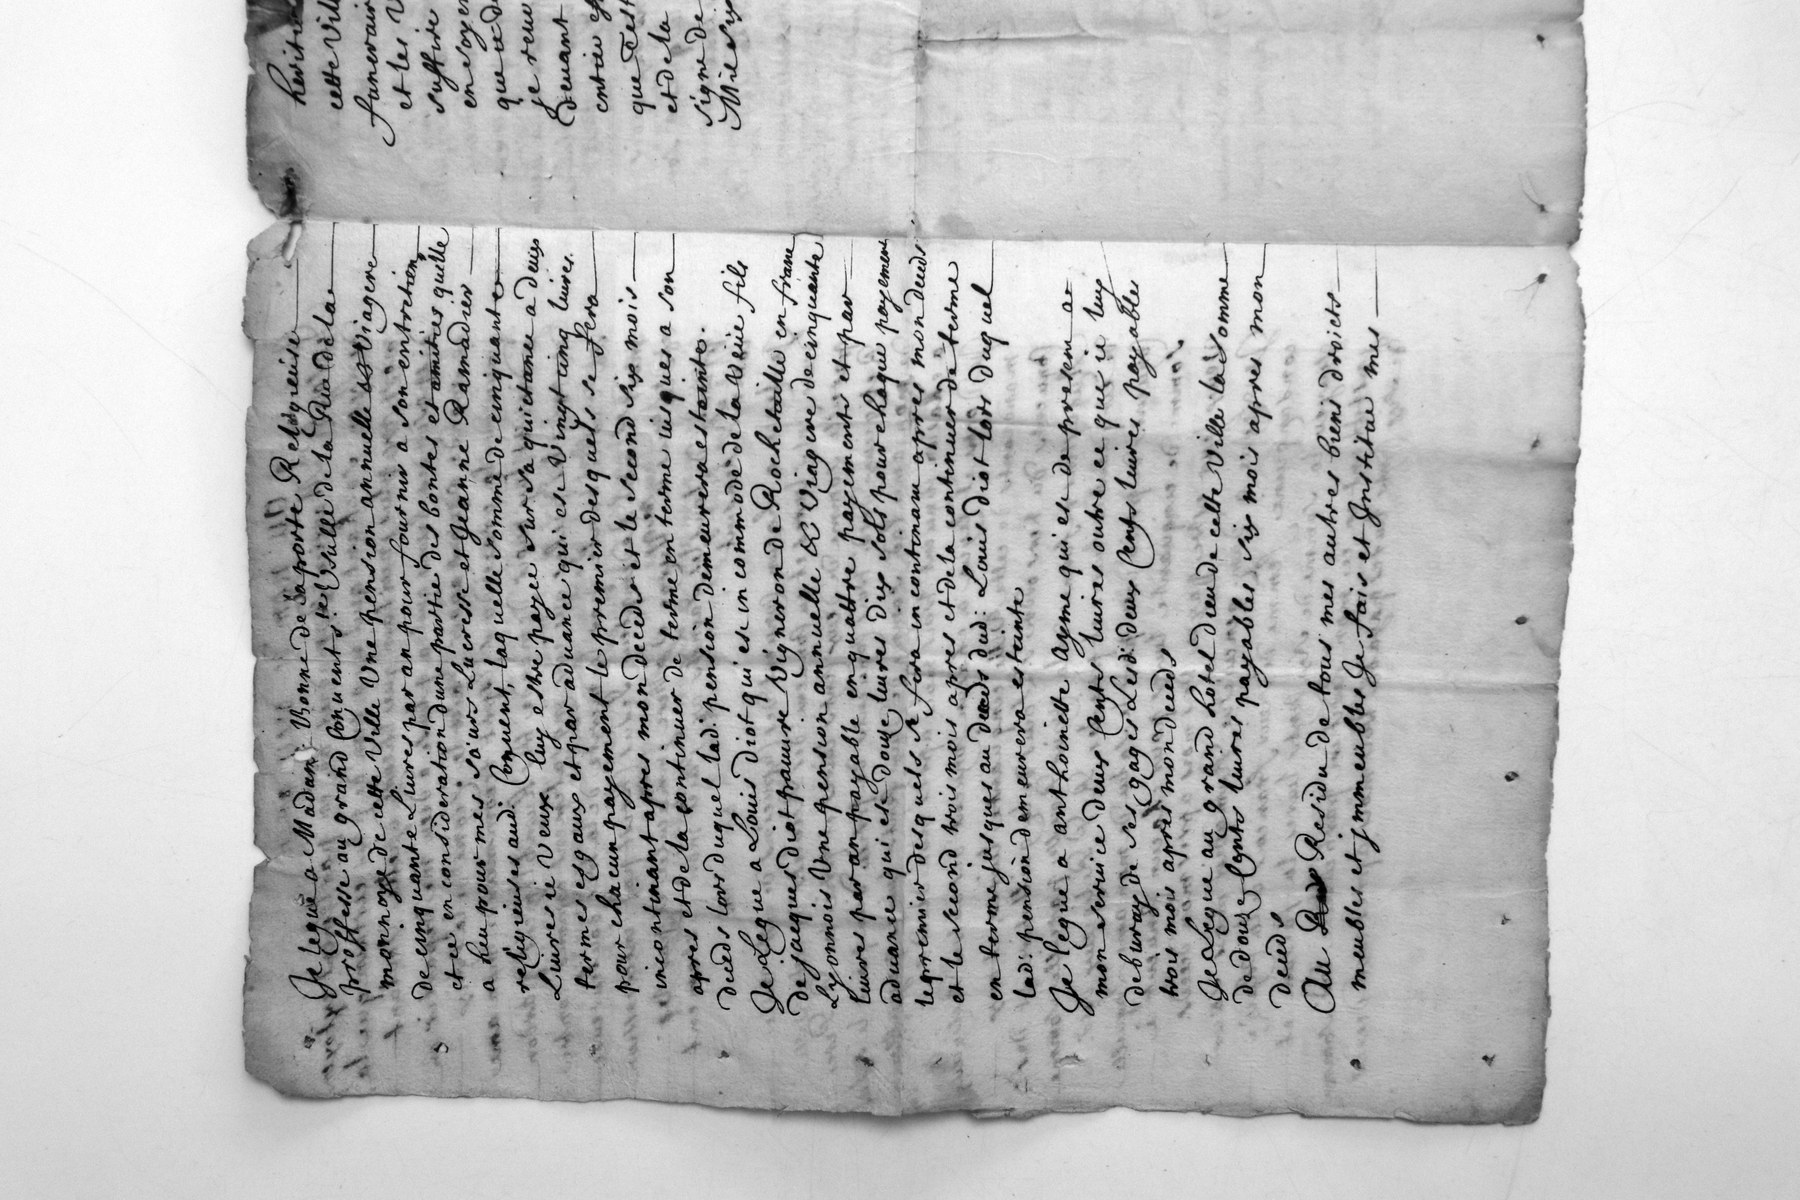 Je legue a Madam: Bonne de la porte Religieuse
professe au grand Convent ste Ursulle de la Rue de la
monnoye de cette Ville Une pension annuelle et Viagere
de cinquante Livres par an pour fournir a son entretien
et ce en consideration d'une partie des bontes et amities quelle
a heu pour mes sœurs Lucresse et Jeanne Ramadier
religieuses aud: Convent, laquelle somme de cinquante
Livres ie Veux luy estre payee sur sa quictance a deux
termes esgaux et par advance qui est Vingt cinq livres
pour chacun payement le premier desquels se fera
incontinant apres mon decéds et le second six mois
apres et de la continuer de terme en terme iusques a son
decéds lors duquel lad: pension demeurera estainte.
Je Legue a Louis diot qui est incommodé de la Veüe fils
de Jacques diot pauvre Vigneron de Rochetaillé en franc
Lyonnois Une pension annuelle & Viagere de cinquante
livres par an payable en quattre payements et par
advance qui est douze livres dix sols pour chaque payement
le premier desquels se fera incontinant apres mon decéds
et le second trois mois apres et de la continuer de terme
en terme jusques au deceds dud: Louis diot lors duquel
lad: pension demeurera esteinte
Je legue a anthoinette ayme qui est de present a
mon service deux Cents livres outre ce que ie luy
debvray de ses gages Lesd: deux Cents livres payables
trois mois apres mon deceds
Je Legue au grand hotel dieu de cette Ville la somme
de douze Cents livres payables six mois apres mon
deceds
Au Residu de tous mes autres biens droicts
meubles et jmmeubles Je fais et Institue mes
herit
cette Vill
funerair
et les V
suffire
en soye
que
je reve
Devant
entier
que
et de la
signe de
Mil six